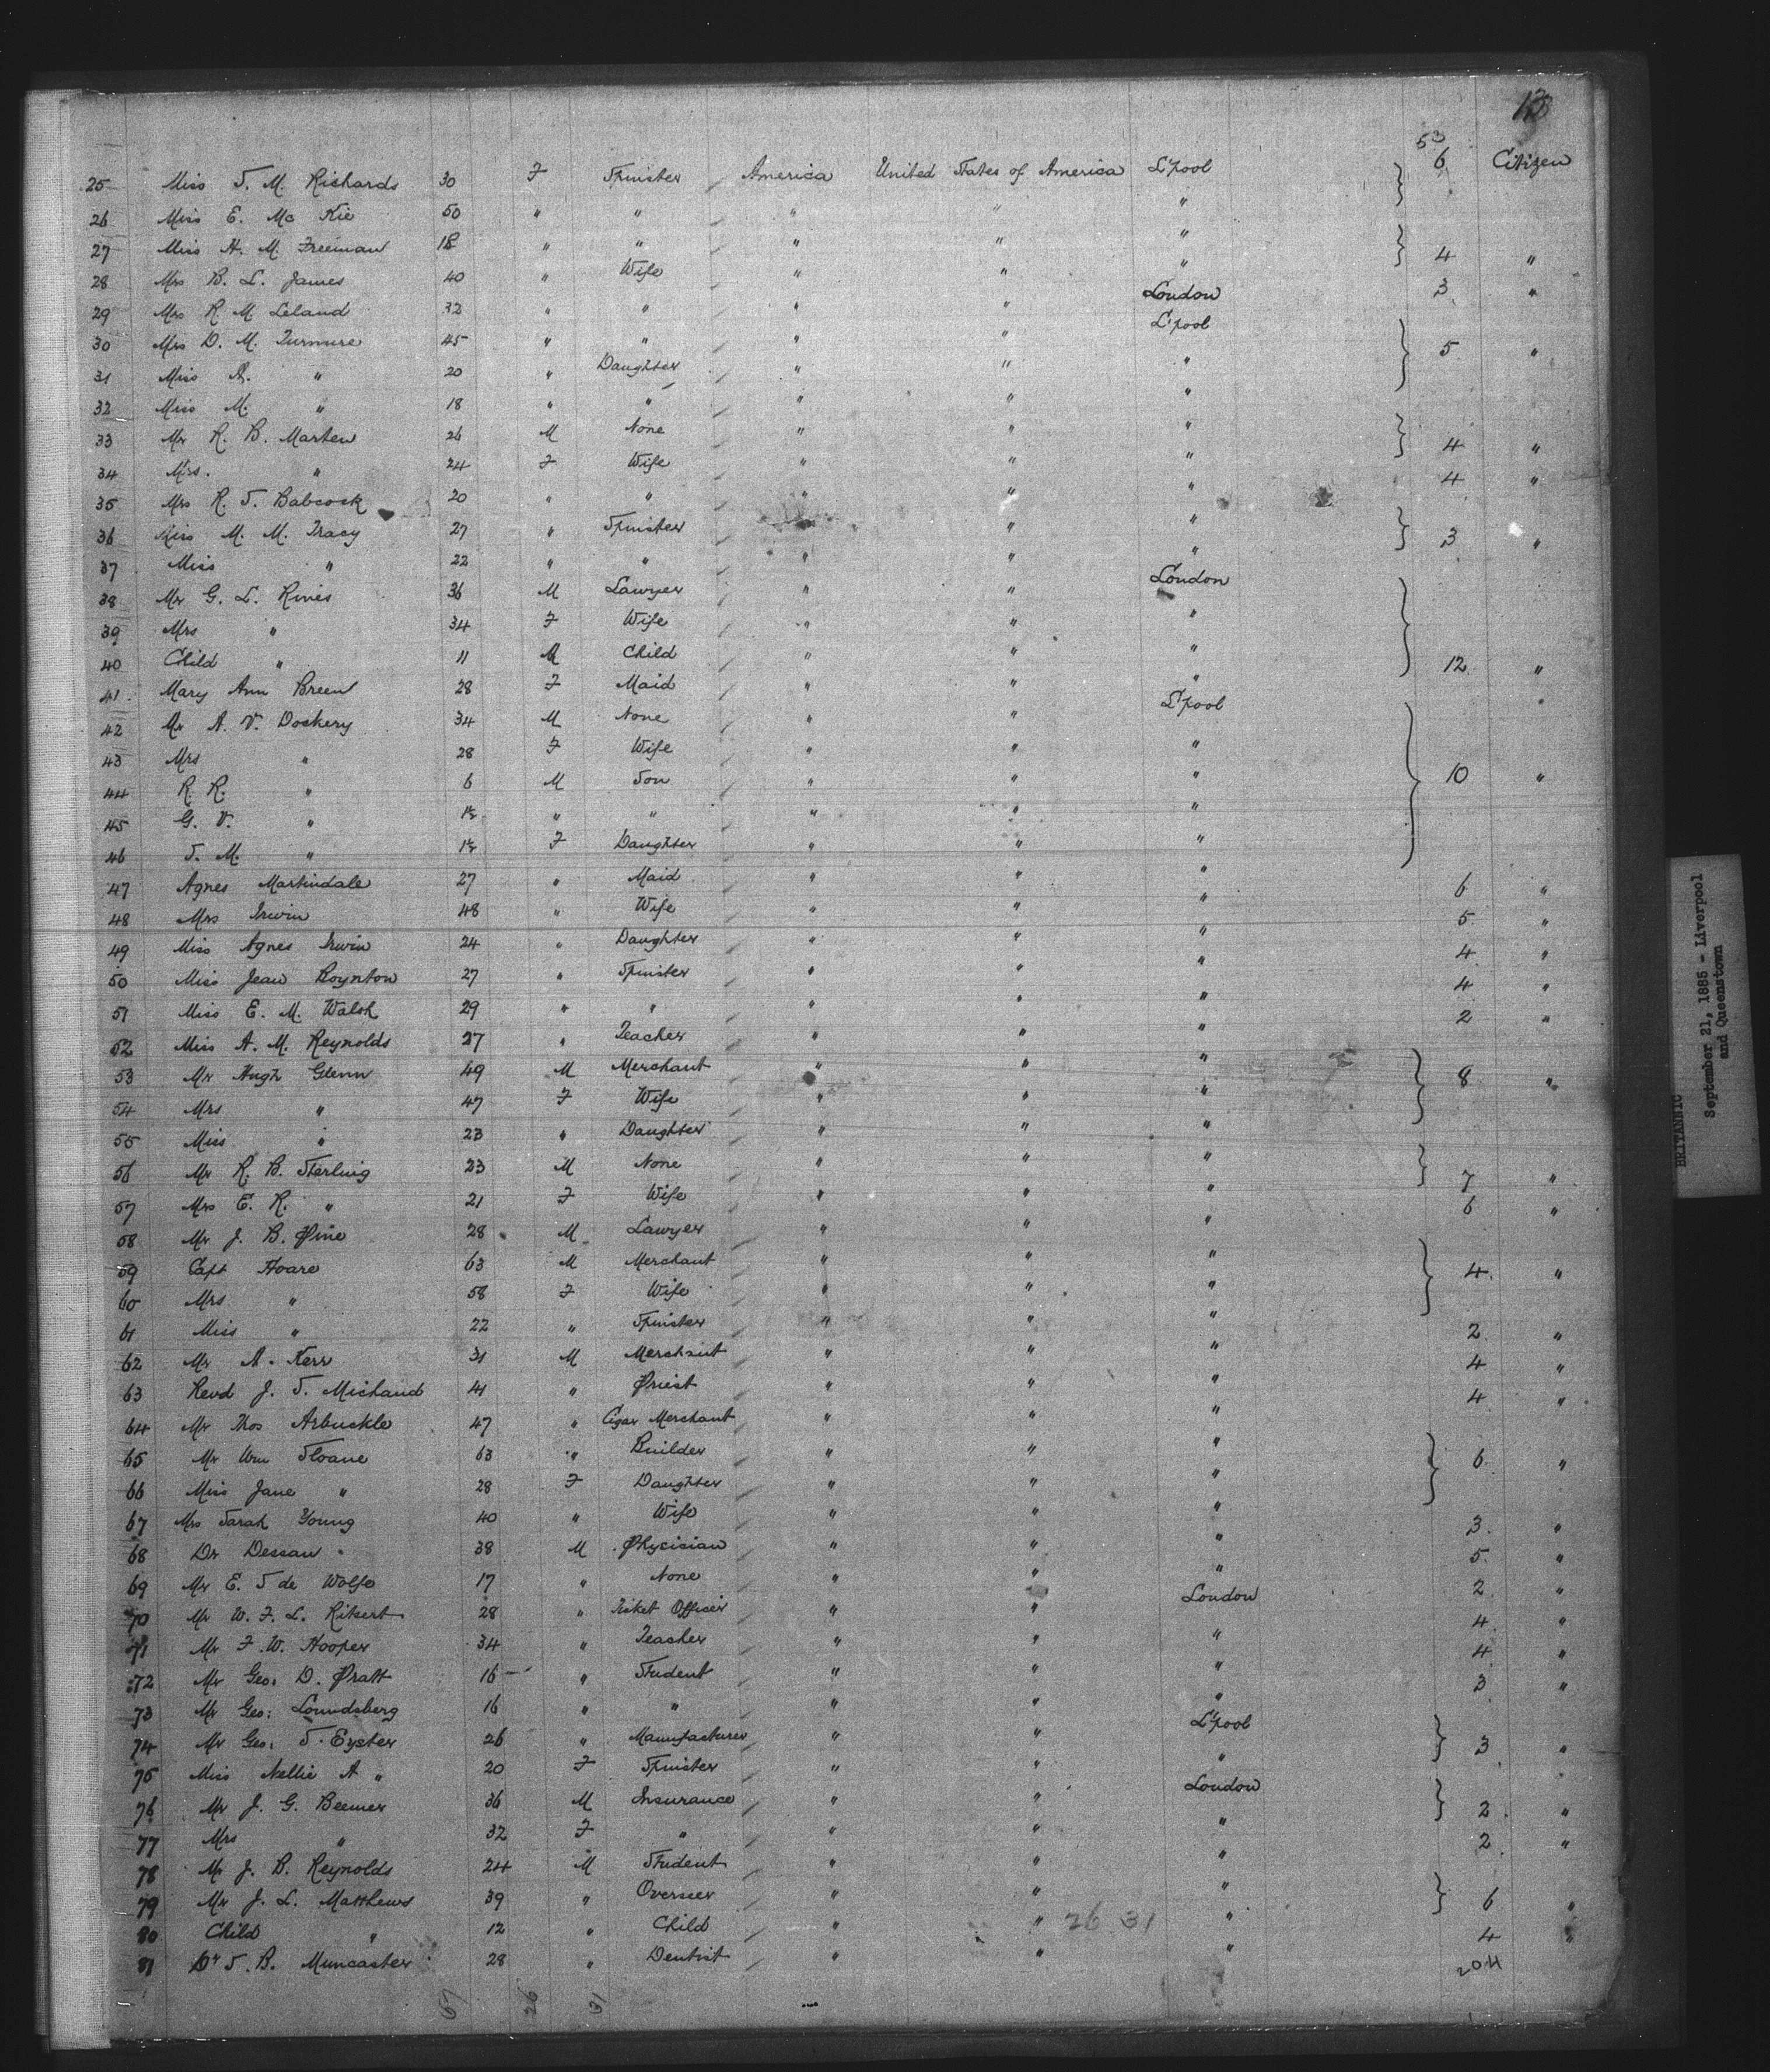 53
25 Miss S. M. Richards 30 F Spinster America United States of America L'pool 6 Citizen
26 Miss E. Mc Kie 50 " " " " "
27 Miss H. M. Freeman 18 " " " " " 4 "
28 Mrs B. L. James 40 " Wife " " " 3 "
29 Mrs R. M. Leland 32 " " " " London
30 Mrs D. M. Turnure 45 " " " " L'pool 5 "
31 Miss A. " 20 " Daughter " " "
32 Miss M. " 18 " " " " "
33 Mr R. B. Marten 26 M None " " " 4 "
34 Mrs. " 24 F Wife " " " 4 "
35 Mrs R. S. Babcock 20 " " " " "
36 Miss M. M. Tracy 27 " Spinster " " " 3 "
37 Miss " 22 " " " " "
38 Mr G. L. Rives 36 M Lawyer " " London
39 Mrs " 34 F Wife " " "
40 Child " 11 M Child " " " 12 "
41 Mary Ann Breen 28 F Maid " " " "
42 Mr A. V. Dockery 34 M None " " L'pool
43 Mrs " 28 F Wife " " "
44 R. R. " 6 M Son " " " 10 "
45 G. V. " 1½ " " " " "
46 S. M. " 1½ F Daughter " " "
47 Agnes Martindale 27 " Maid " " " 6 "
48 Mrs Irwin 48 " Wife " " " 5 "
49 Miss Agnes Irwin 24 " Daughter " " " 4 "
50 Miss Jean Boynton 27 " Spinster " " " 4 "
51 Miss E. M. Walsh 29 " " " " " 2 "
52 Miss A. M. Reynolds 27 " Teacher " " "
53 Mr Hugh Glenn 49 M Merchant " " " 8 "
54 Mrs " 47 F Wife " " "
55 Miss " 23 " Daughter " " "
56 Mr R. B. Sterling 23 M None " " " 7 "
57 Mrs E. R. " 21 F Wife " " " 6 "
58 Mr J. B. Pine 28 M Lawyer " " "
59 Capt Hoare 63 M Merchant " " " 4 "
60 Mrs " 58 F Wife " " "
61 Miss " 22 " Spinster " " " 2 "
62 Mr A. Kerr 31 M Merchant " " " 4 "
63 Revd J. S. Michaud 41 " Priest " " " 4 "
64 Mr Thos Arbuckle 47 " Cigar Merchant " " "
65 Mr Wm Sloane 63 " Builder " " " 6 "
66 Miss Jane " 28 F Daughter " " "
67 Mrs Sarah Young 40 " Wife " " " 3 "
68 Dr Dessau 38 M Physician " " " 5 "
69 Mr E. S de Wolfe 17 " None " " " 2 "
70 Mr W. F. L. 28 " Ticket Officer " " London 4 "
71 Mr F. W. Hooper 34 " Teacher " " " 4 "
72 Mr Geo: D. Pratt 16 " Student " " " 3 "
73 Mr Geo: Loundsberg 16 " " " " "
74 Mr Geo: S. Eyster 26 " Manufacturer " " L'pool 3 "
75 Miss Nellie A " 20 F Spinster " " "
76 Mr J. G. Beemer 36 M Insurance " " London 2 "
77 Mrs " 32 F " " " " 2 "
78 Mr J. B. Reynolds 24 M Student " " "
79 Mr J. L. Matthews 39 " Overseer " " " 6 "
80 Child " 12 " Child " " 26 31 " 4 "
81 Dr S. B. Muncaster 28 " Dentist " " " 204
57 26 31
BRITANNIC
September 21, 1885 - Liverpool
and Queenstown